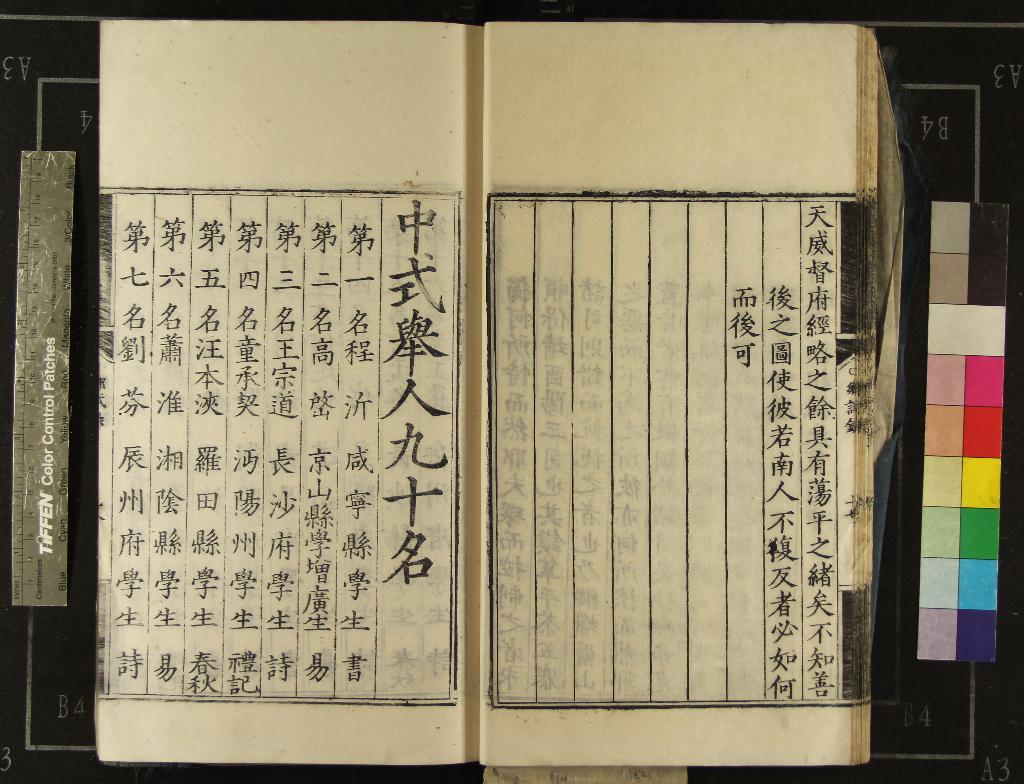 天威督府經略之餘具有蕩平之緒矣不知善
後之圖使彼若南人不復反者必如何
而後可
中式舉人九十名
第一名程沂 咸寧縣學生 書
第二名高啓 京山縣學增廣生 易
第三名王宗道 長沙府學生 詩
第四名童承契 沔陽州學生 禮記
第五名汪本浹 羅田縣學生 春秋
第六名蕭淮 湘陰縣學生 易
第七名劉芬 辰州府學生 詩
TIFFEN Color Control Patches
Centimetres
Blue
Cyan
Green
Yellow
Red
Magenta
White
3/Color
Black
A3
B4
B4
A3
B4
B4
3
A3